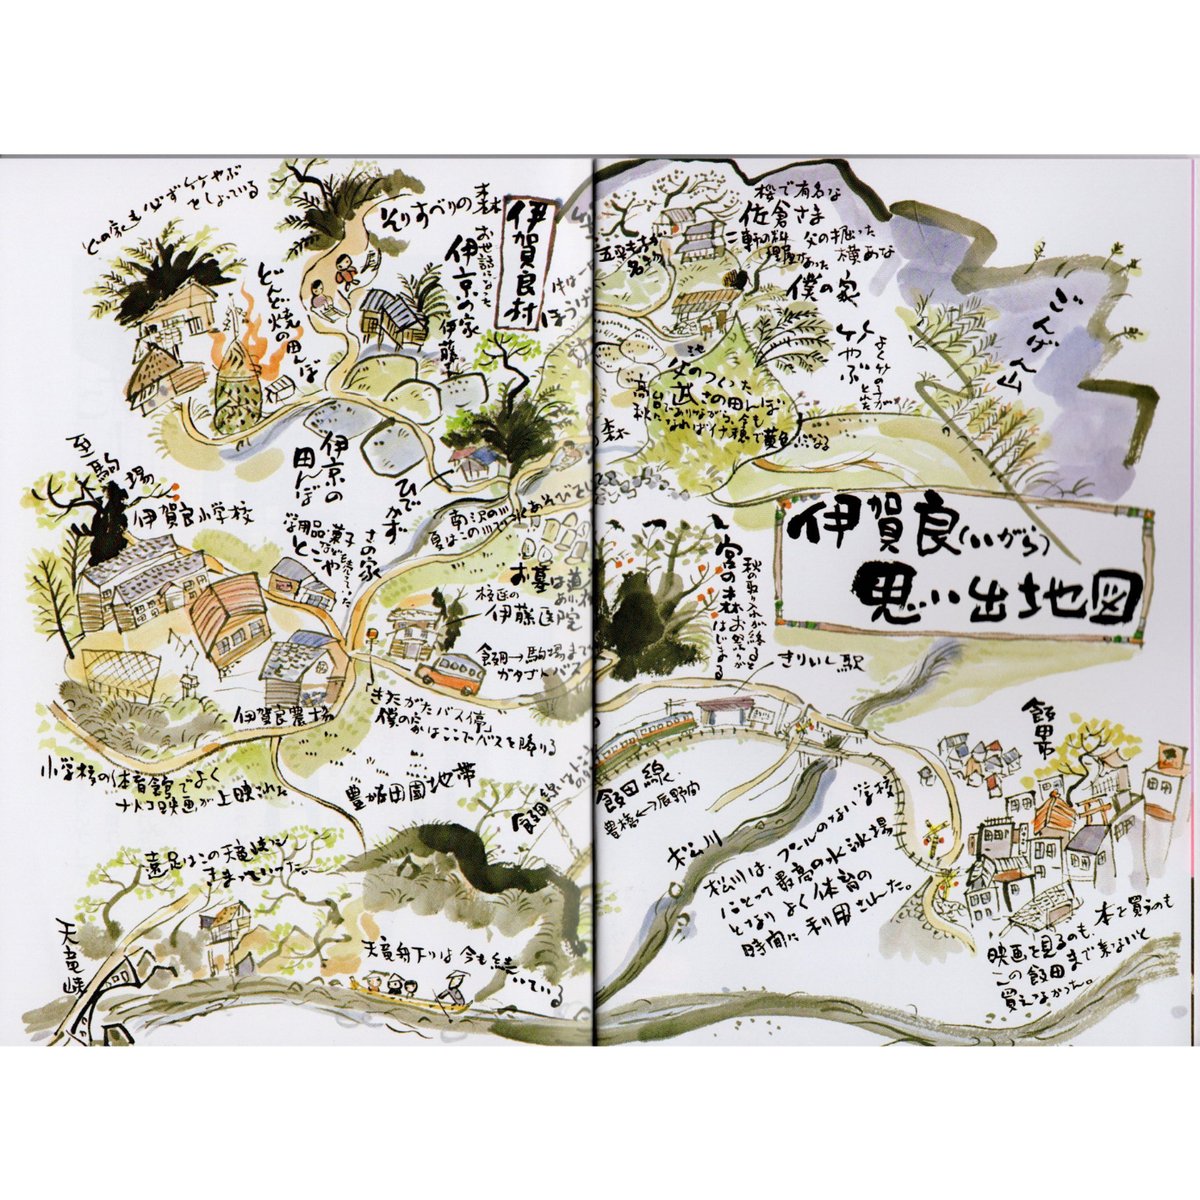 伊賀良(いがら)
思い出地図
伊賀良村
どの家も必ず竹やぶ
をしょっている
どんど焼
の田んぼ
そりすべりの森
お世話になった
伊京の家
伊藤
伊京の
田んぼ
ひでかず
さの家
学用品
菓子
とこや
至駒場
伊賀良小学校
伊賀良農場
小学校の体育館でよく
ナトコ映画が上映された
南沢の川
夏はこの川で水あそびをし
お墓
伊藤医院
飯田→駒場まで
ガタゴトバス
「きたがたバス停」
僕の家がはここでバスを降りる
豊かな田園地帯
飯田線
遠足はこの天竜峡に
きまっていった。
天竜峡
天竜舟下りは今も続いている
桜で有名な
佐倉さま
二軒の料理屋があった
父の掘った
横あな
僕の家
竹やぶ
よく竹の子が
とれた
ごんげん山
父のつくった
高台でありながら、今も
秋になれば
稲穂で黄色になる
森
宮の森
秋の取り入れが終ると
お祭りが
はじまる
きりいし駅
飯田線
豊橋←→辰野間
松川
松川は、プールのない学校
にとって最高の水泳場
となり よく体育の
時間に利用された。
飯田市
映画を見るのも、本を買うのも
この飯田まで来ないと
買えなかった。